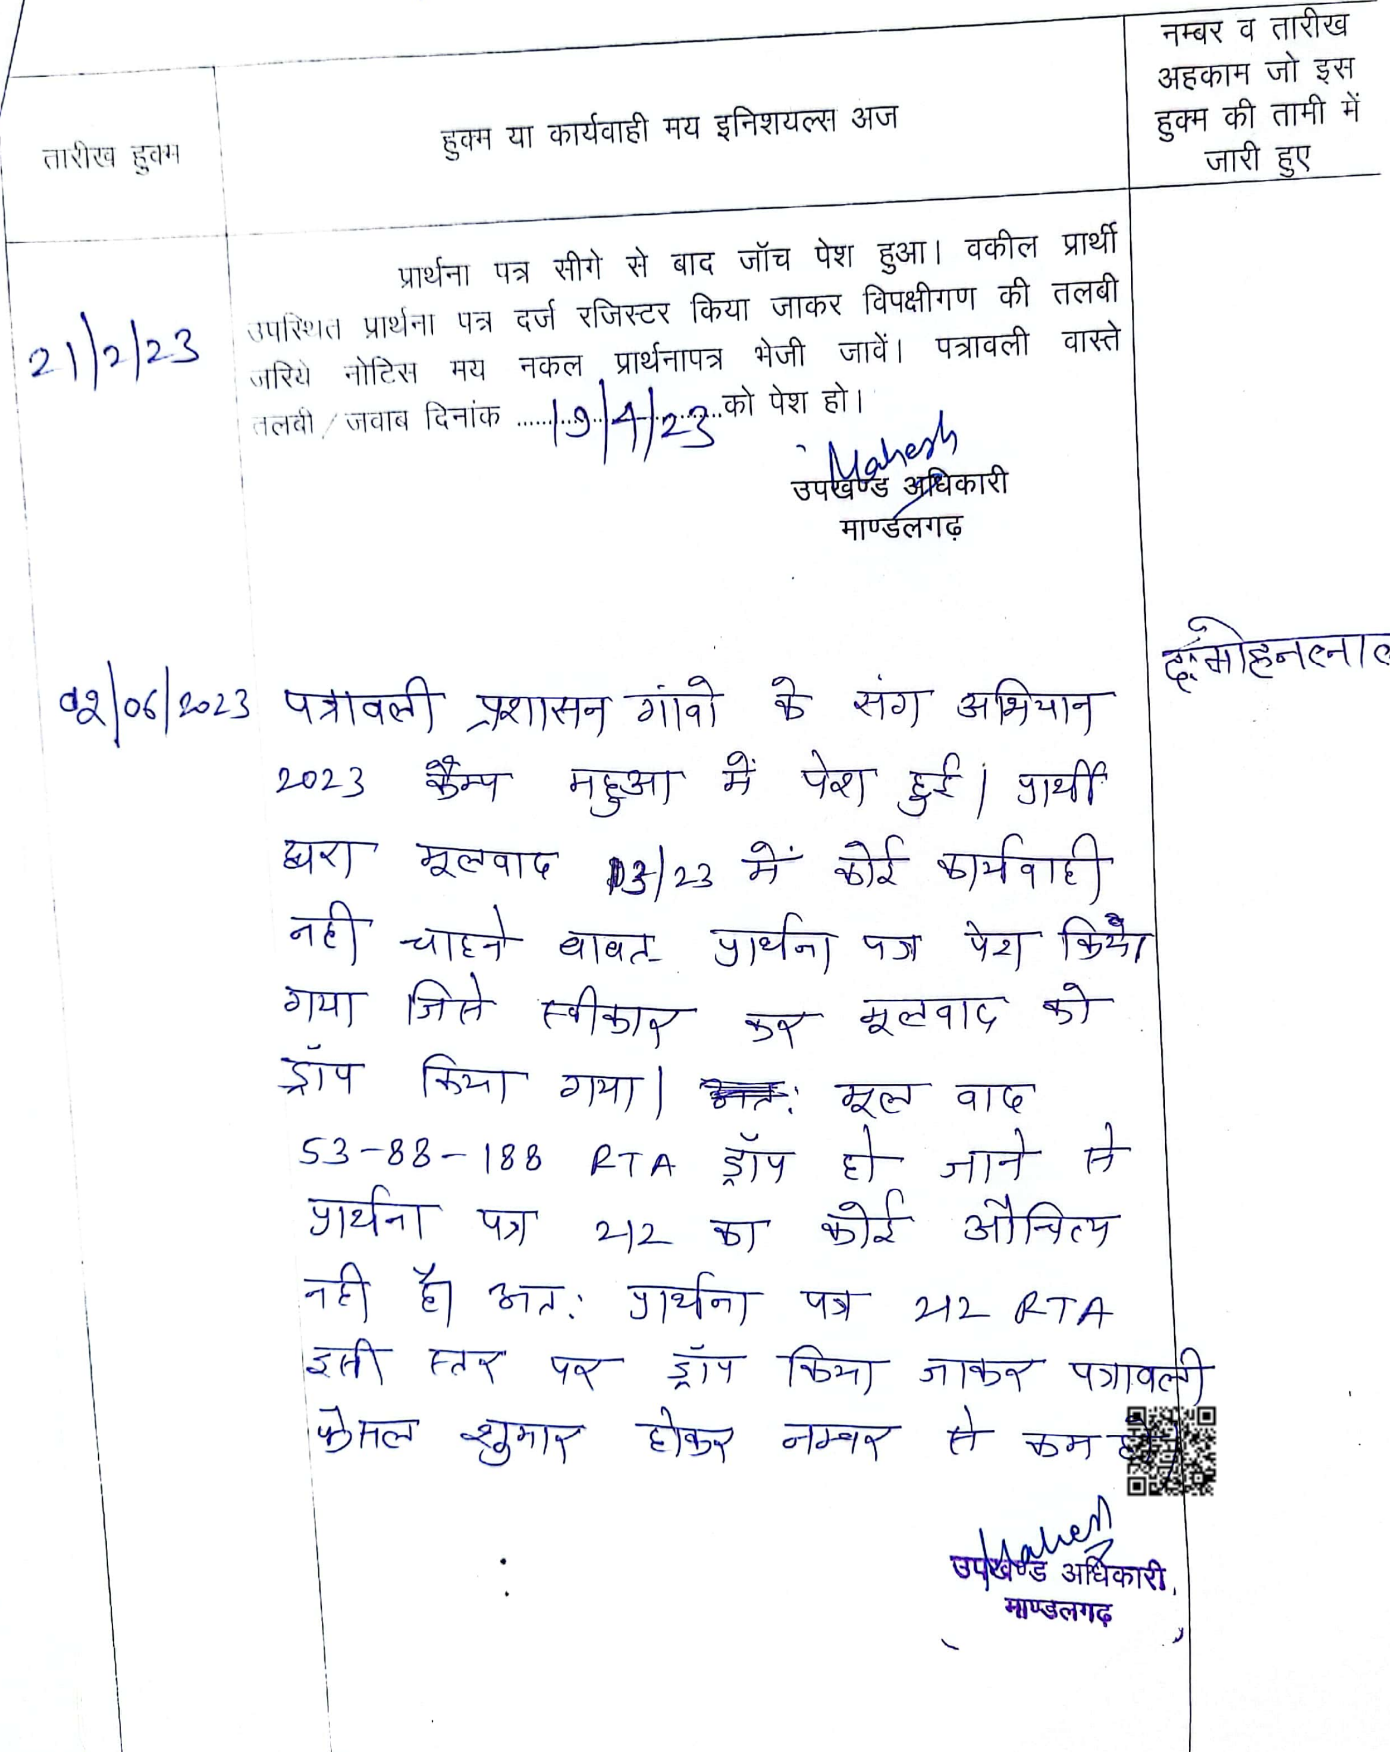 तारीख हुक्म
हुक्म या कार्यवाही मय इनिशयल्स अज
नम्बर व तारीख
अहकाम जो इस
हुक्म की तामी में
जारी हुए
21/2/23
प्रार्थना पत्र सीगे से बाद जॉच पेश हुआ। वकील प्रार्थी
उपस्थित प्रार्थना पत्र दर्ज रजिस्टर किया जाकर विपक्षीगण की तलबी
जरिये नोटिस मय नकल प्रार्थनापत्र भेजी जावें। पत्रावली वास्ते
तलबी / जवाब दिनांक ......19/4/23......को पेश हो।
Mahesh
उपखण्ड अधिकारी
माण्डलगढ़
द. मोहनलाल
02/06/2023 पत्रावली प्रशासन गांवो के संग अभियान
2023 कैम्प महुआ में पेश हुई। प्रार्थी
द्वारा मूलवाद 13/23 में कोई कार्यवाही
नही चाहने बाबत प्रार्थना पत्र पेश किया
गया जिसे स्वीकार कर मूलवाद को
ड्रॉप किया गया। अतः मूल वाद
53-88-188 RTA ड्रॉप हो जाने से
प्रार्थना पत्र 212 का कोई औचित्य
नही है। अतः प्रार्थना पत्र 212 RTA
इसी स्तर पर ड्रॉप किया जाकर पत्रावली
फेसल शुमार होकर नम्बर से कम हो।
Mahesh
उपखण्ड अधिकारी,
माण्डलगढ़